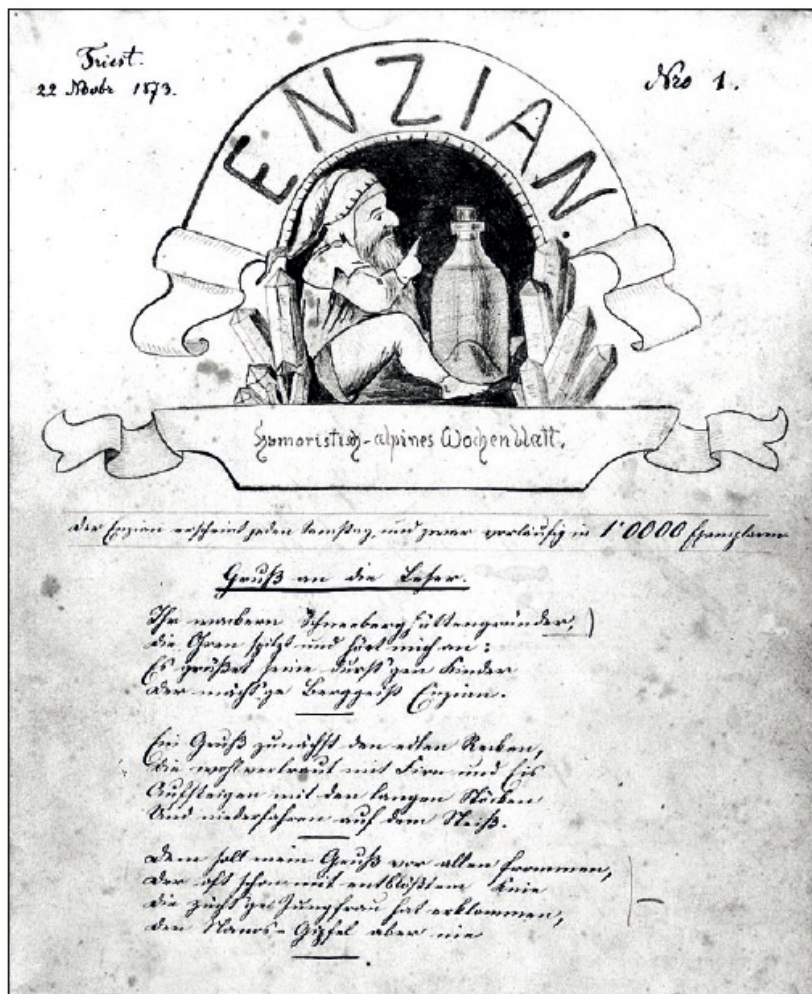 Triest.
22 Novbr 1873.
Nro 1.
ENZIAN.
Humoristisch-alpines Wochenblatt.
Der Enzian erscheint jeden Samstag, und zwar vorläufig in 1'0000 Exemplaren
Gruß an die Leser.
Ihr wackern Schneeberghüttengründer,
die Ohren spitzt und hört mich an:
Es grüßet seine durst'gen Kinder
Der mächt'ge Berggeist Enzian.
Ein Gruß zunächst den edlen Recken,
Die wohlvertraut mit Firn und Eis
Aufsteigen mit den langen Stöcken
Und niederfahren auf dem Steiß.
Dem halt mein Gruß vor allen frommen,
Der oft schon mit entblößtem Knie
die zücht'ge Jungfrau hat erklommen,
den Nanos-Gipfel aber nie